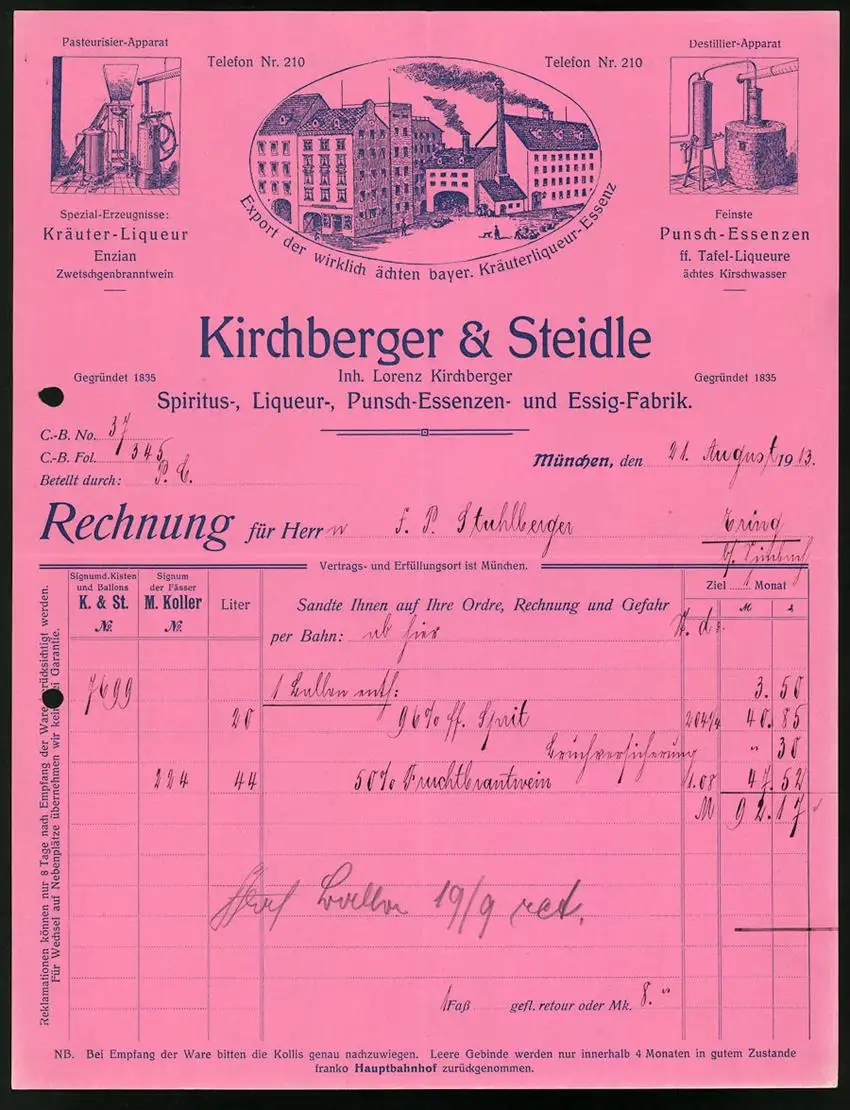 Pasteurisier-Apparat
Destillier-Apparat
Telefon Nr. 210
Telefon Nr. 210
Export der wirklich ächten bayer. Kräuterliqueur-Essenz
Spezial-Erzeugnisse:
Kräuter-Liqueur
Enzian
Zwetschgenbranntwein
Feinste
Punsch-Essenzen
ff. Tafel-Liqueure
ächtes Kirschwasser
Kirchberger & Steidle
Gegründet 1835
Inh. Lorenz Kirchberger
Gegründet 1835
Spiritus-, Liqueur-, Punsch-Essenzen- und Essig-Fabrik.
C.-B. No. 37
C.-B. Fol. 345
Betellt durch: P. C.
München, den 21. August 1913.
Rechnung für Herrn F. P. Stuhlberger Ering
Vertrags- und Erfüllungsort ist München.
Signumd.Kisten und Ballons
K. & St.
№
Signum der Fässer
M. Koller
№
Liter
Sandte Ihnen auf Ihre Ordre, Rechnung und Gefahr
per Bahn: ab hier
Ziel Monat
M
7699 1 Ballon enth: 3. 50
20 96% ff. Sprit 204¼ 40. 85
Bruchversicherung " 30
224 44 50% Fruchtbrantwein 1.08 47. 52
M 92. 17
Ballon 19/9 ret.
1 Faß gefl. retour oder Mk. 8. "
Reklamationen können nur 8 Tage nach Empfang der Ware berücksichtigt werden.
Für Wechsel auf Nebenplätze übernehmen wir keinerlei Garantie.
NB. Bei Empfang der Ware bitten die Kollis genau nachzuwiegen. Leere Gebinde werden nur innerhalb 4 Monaten in gutem Zustande
franko Hauptbahnhof zurückgenommen.